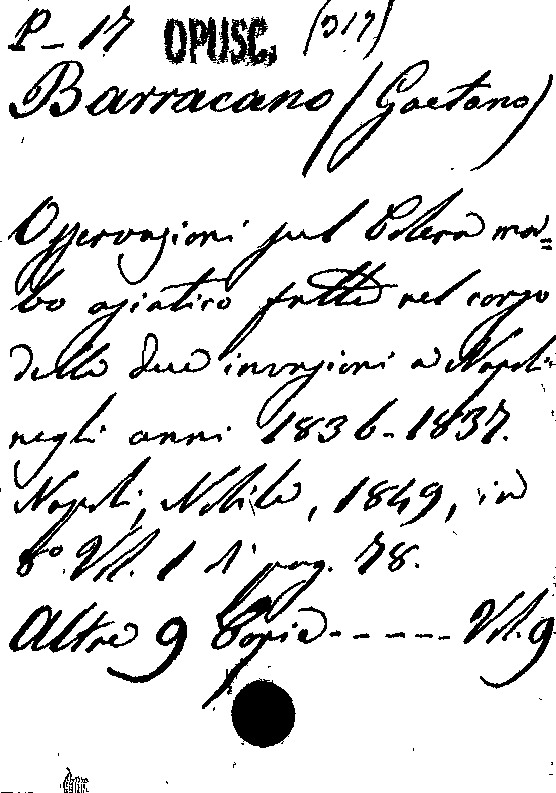 P_ 17 OPUSC. (317)
Barracano (Gaetano)
Osservazioni sul Colera mor=
bo asiatico fatte nel corso
delle due invasioni a Napoli
negli anni 1836-1837.
Napoli, Nobile, 1849, in
8° Vol. 1 di pag. 78.
Altre 9 Copie----- Vol. 9